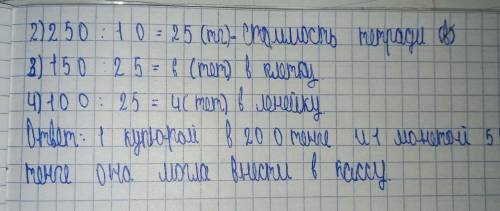 2) 250 : 10 = 25 (тг) - стоимость тетради
3) 150 : 25 = 6 (тет) в клетку
4) 100 : 25 = 4 (тет) в ленейку
Ответ: 1 купюрой в 200 тенге и 1 монетой 5
тенге она могла внести в кассу.